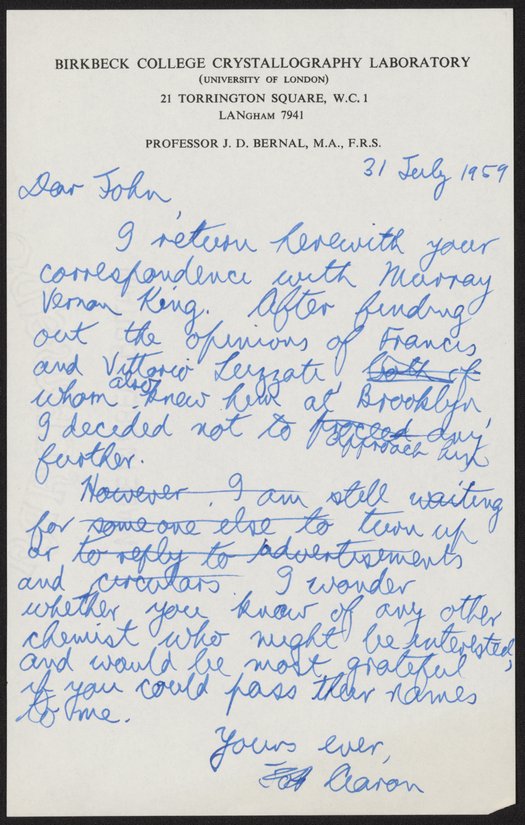 BIRKBECK COLLEGE CRYSTALLOGRAPHY LABORATORY
(UNIVERSITY OF LONDON)
21 TORRINGTON SQUARE, W.C.1
LANGHAM 7941
PROFESSOR J. D. BERNAL, M.A., F.R.S.
31 July 1959
Dear John,
I return herewith your
correspondence with Murray
Vernon King. After finding
out the opinions of Francis
and Vittorio Luzzati both of
whom also knew him at Brooklyn
I decided not to proceed any
approach him
further.
However I am still waiting
for someone else to turn up
or to reply to advertisements
and circulars. I wonder
whether you know of any other
chemist who might be interested,
and would be most grateful
if you could pass their names
to me.
Yours ever,
Aaron